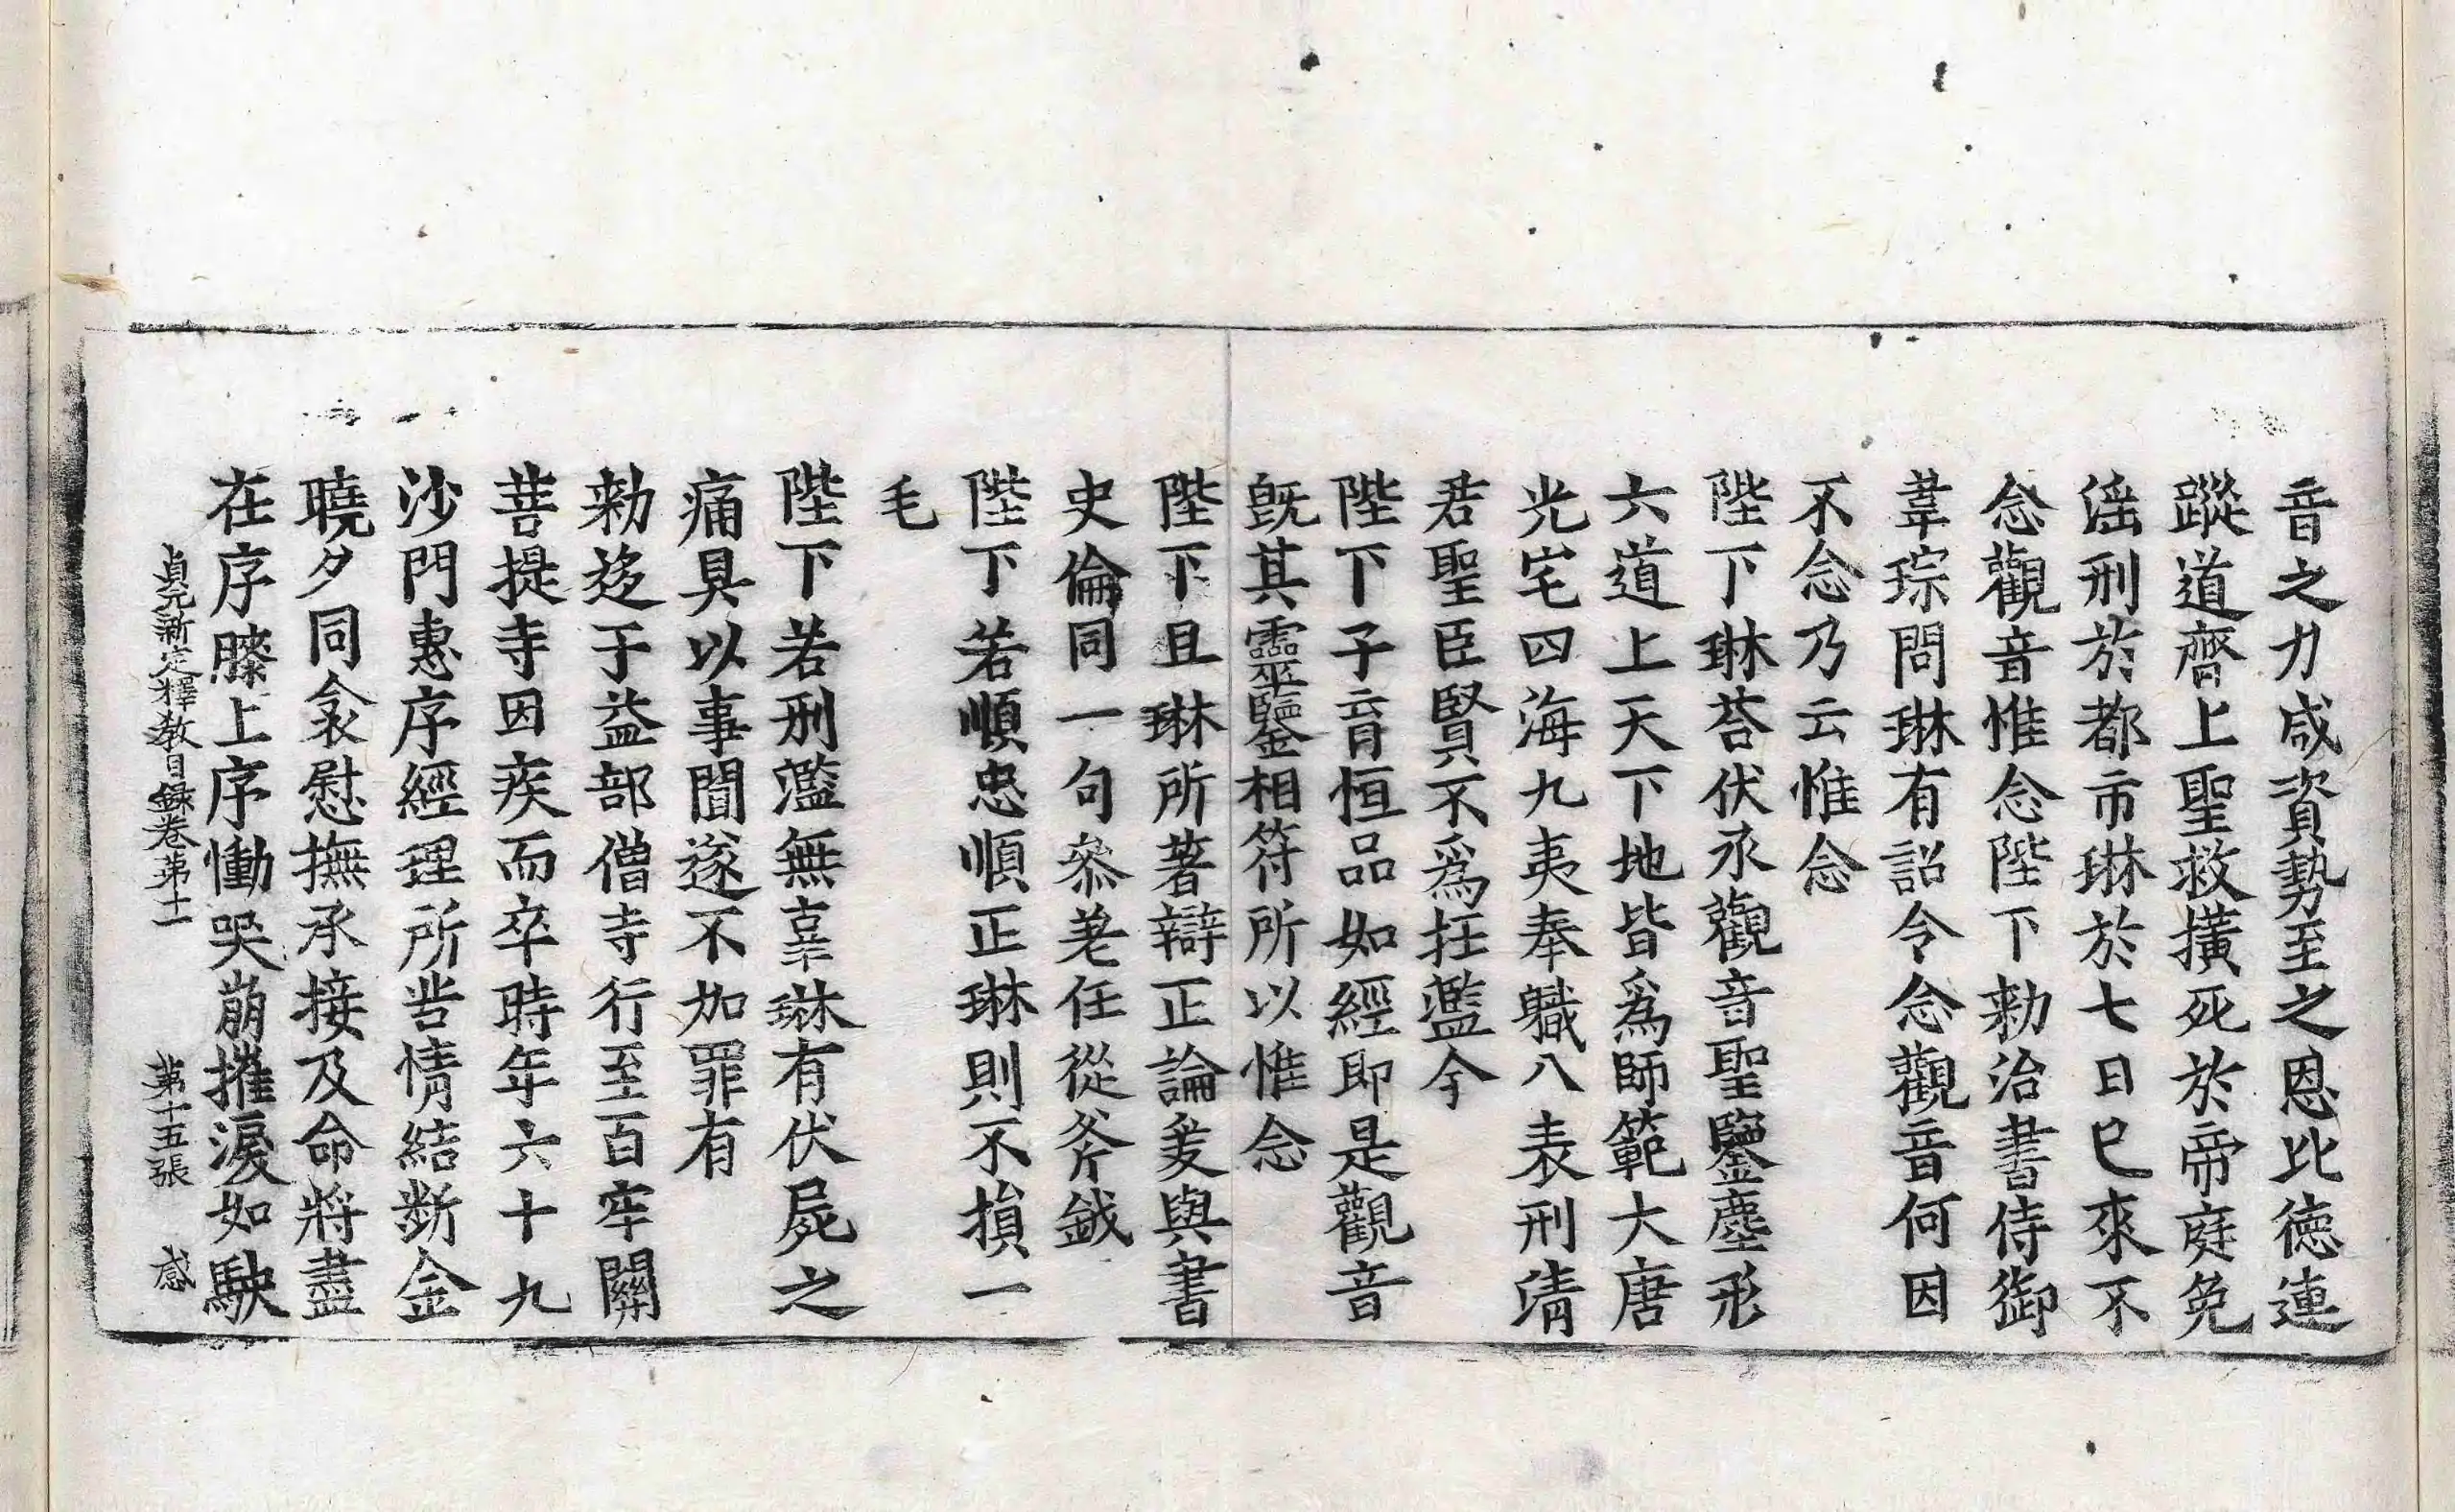 音之力咸資勢至之恩比德連
蹤道齊上聖救撗死於帝庭免
滛刑於都市琳於七日已來不
念觀音惟念陛下勑治書侍御
韋琮問琳有詔令念觀音何因
不念乃云惟念
陛下琳荅伏承觀音聖鑒塵形
六道上天下地皆爲師範大唐
光宅四海九夷奉軄八表刑清
君聖臣賢不爲抂濫今
陛下子育恒品如經即是觀音
旣其靈鑒相符所以惟念
陛下且琳所著辯正論爰與書
史倫同一句叅差任從斧鉞
陛下若順忠順正琳則不損一
毛
陛下若刑濫無辜琳有伏屍之
痛具以事聞遂不加罪有
勑迻于益部僧寺行至百牢關
菩提寺因疾而卒時年六十九
沙門惠序經理所苦情結断金
曉夕同衾慰撫承接及命將盡
在序膝上序慟哭崩摧淚如駃
貞元新定釋教目録卷第十一 第十五張 感